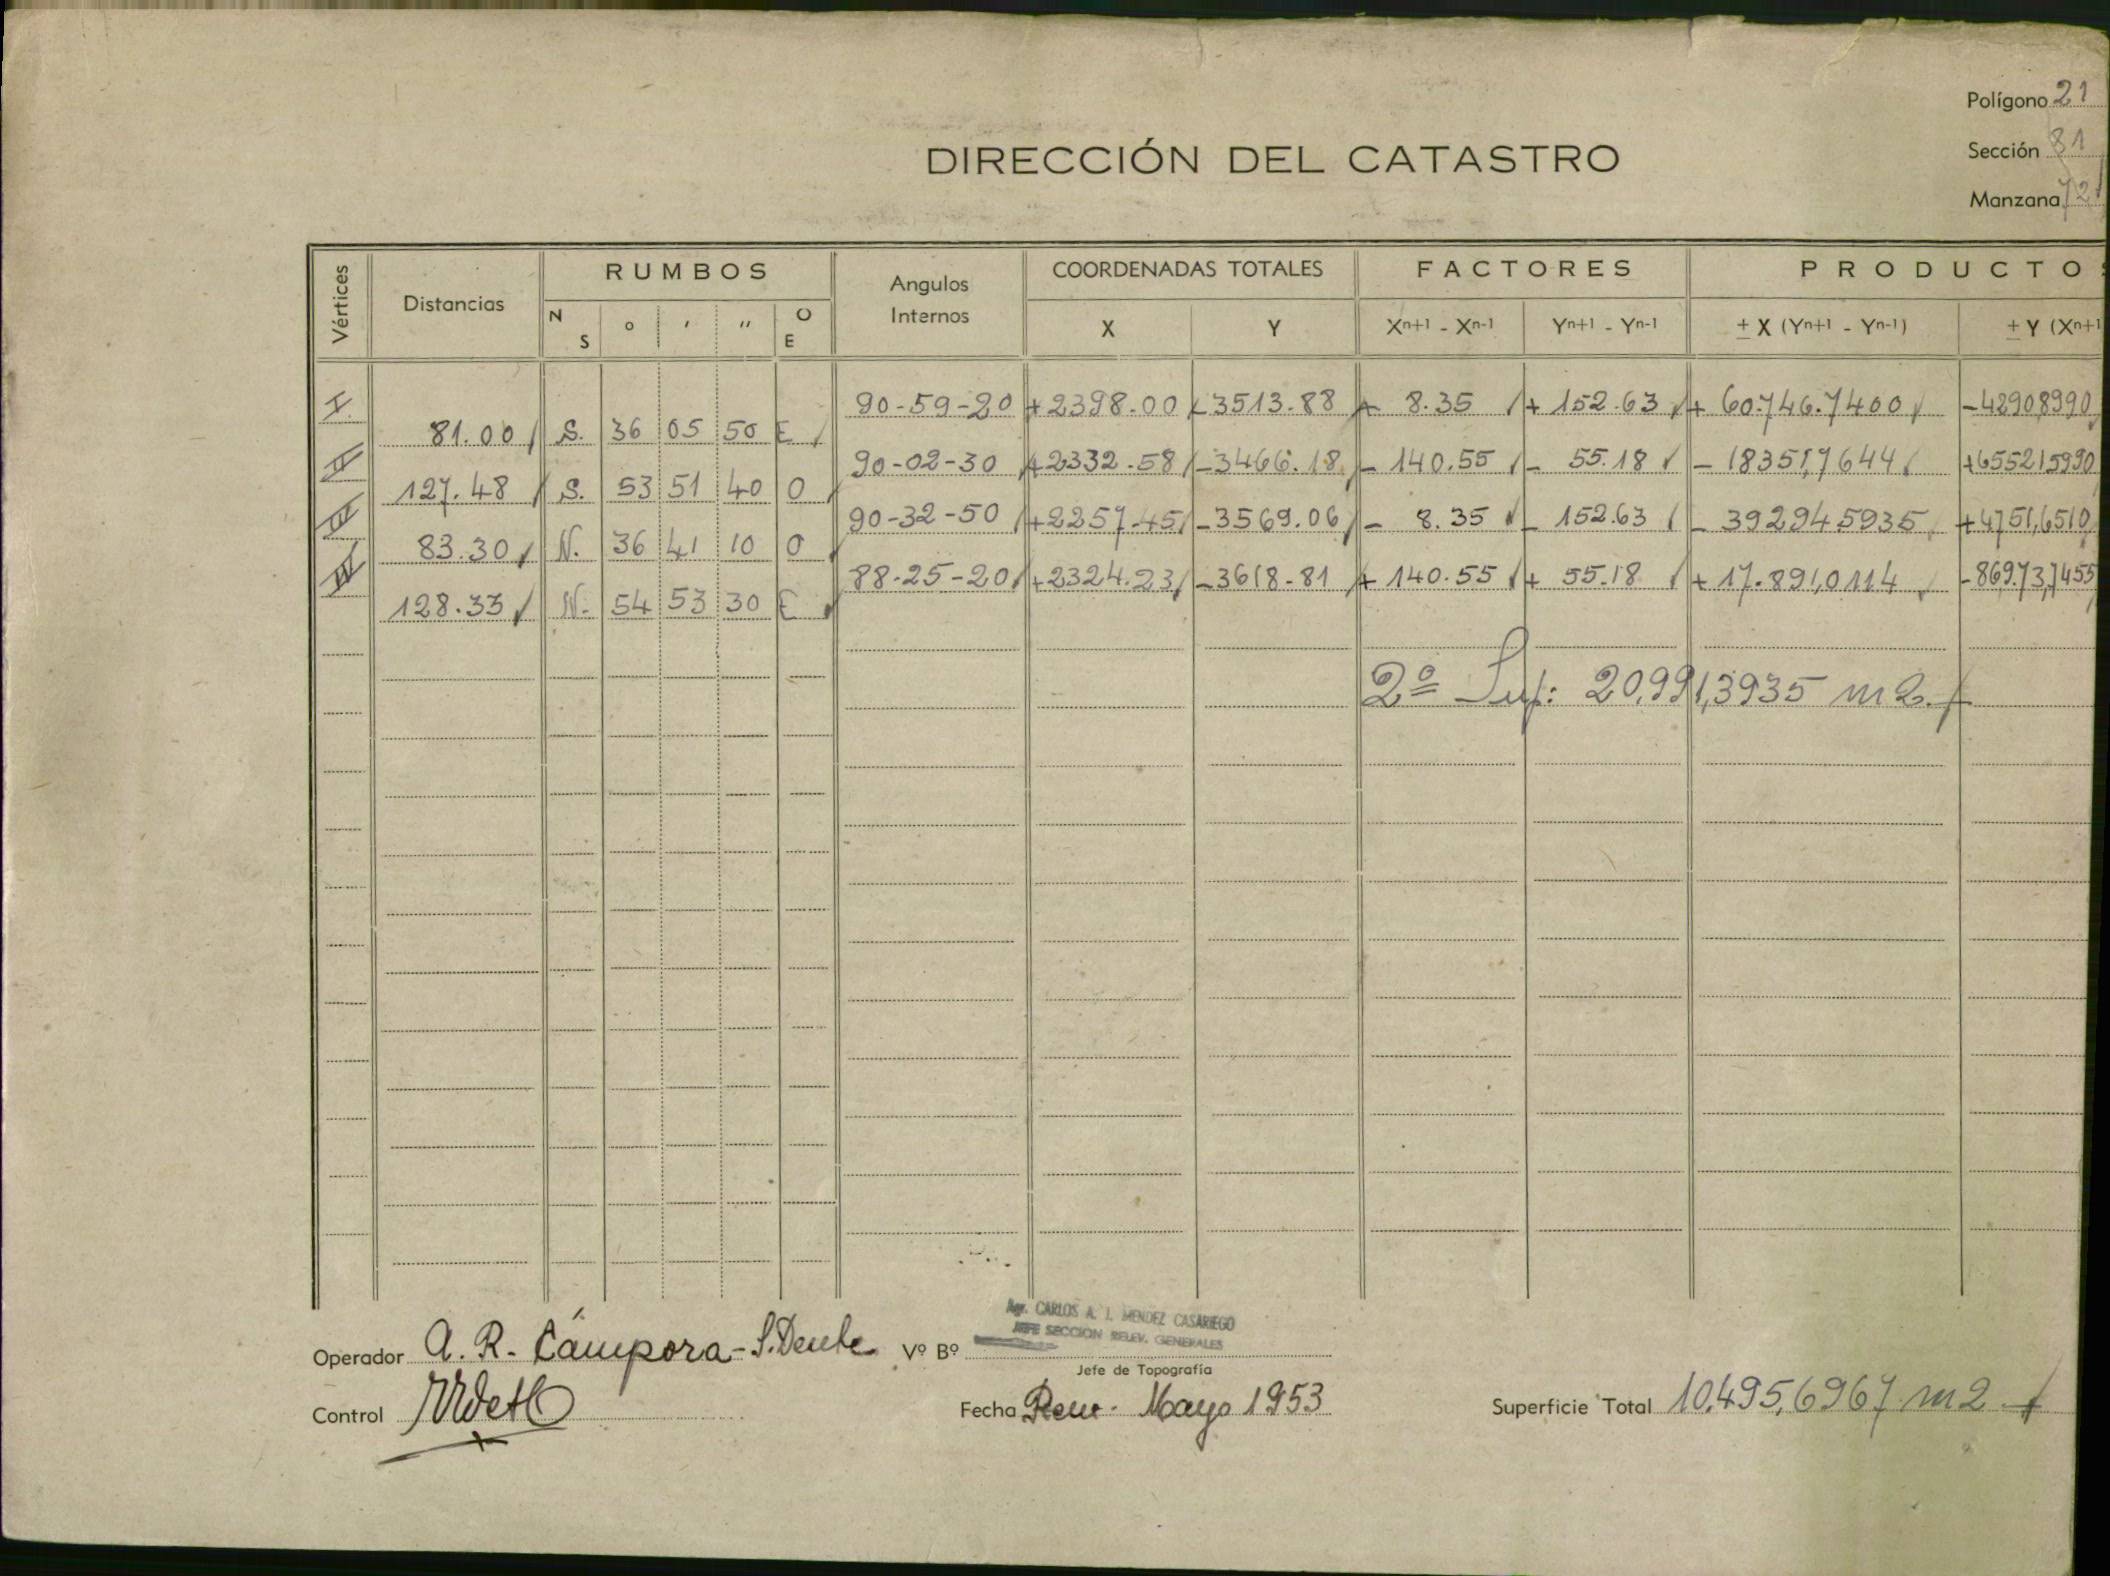 Polígono 21
DIRECCIÓN DEL CATASTRO
Sección 81
Manzana 72
Vértices Distancias RUMBOS Angulos Internos COORDENADAS TOTALES FACTORES PRODUCTOS
N S ° ' " O E X Y Xn+1 - Xn-1 Yn+1 - Yn-1 ± X (Yn+1 - Yn-1) ± Y (Xn+1
I 90-59-20 +2398.00 -3513.88 + 8.35 + 152.63 + 60.746.7400 -42908990
81.00 S. 36 05 50 E
II 90-02-30 +2332.58 -3466.18 - 140.55 - 55.18 - 18351,7644 +655215990
127.48 S. 53 51 40 O
III 90-32-50 +2257.45 -3569.06 - 8.35 - 152.63 - 392945935 +4751,6510
83.30 N. 36 41 10 O
IV 88-25-20 +2324.23 -3618-81 + 140.55 + 55.18 + 17.891,0114 -869.73,7455
128.33 N. 54 53 30 E
2º Sup: 20,991,3935 m2.
Agr. CARLOS A. J. MENDEZ CASARIEGO
JEFE SECCION RELEV. GENERALES
Operador A. R. Cámpora - S. Dente Vº Bº
Jefe de Topografía
Control
Fecha Rev. Mayo 1953
Superficie Total 10,495,6967 m2